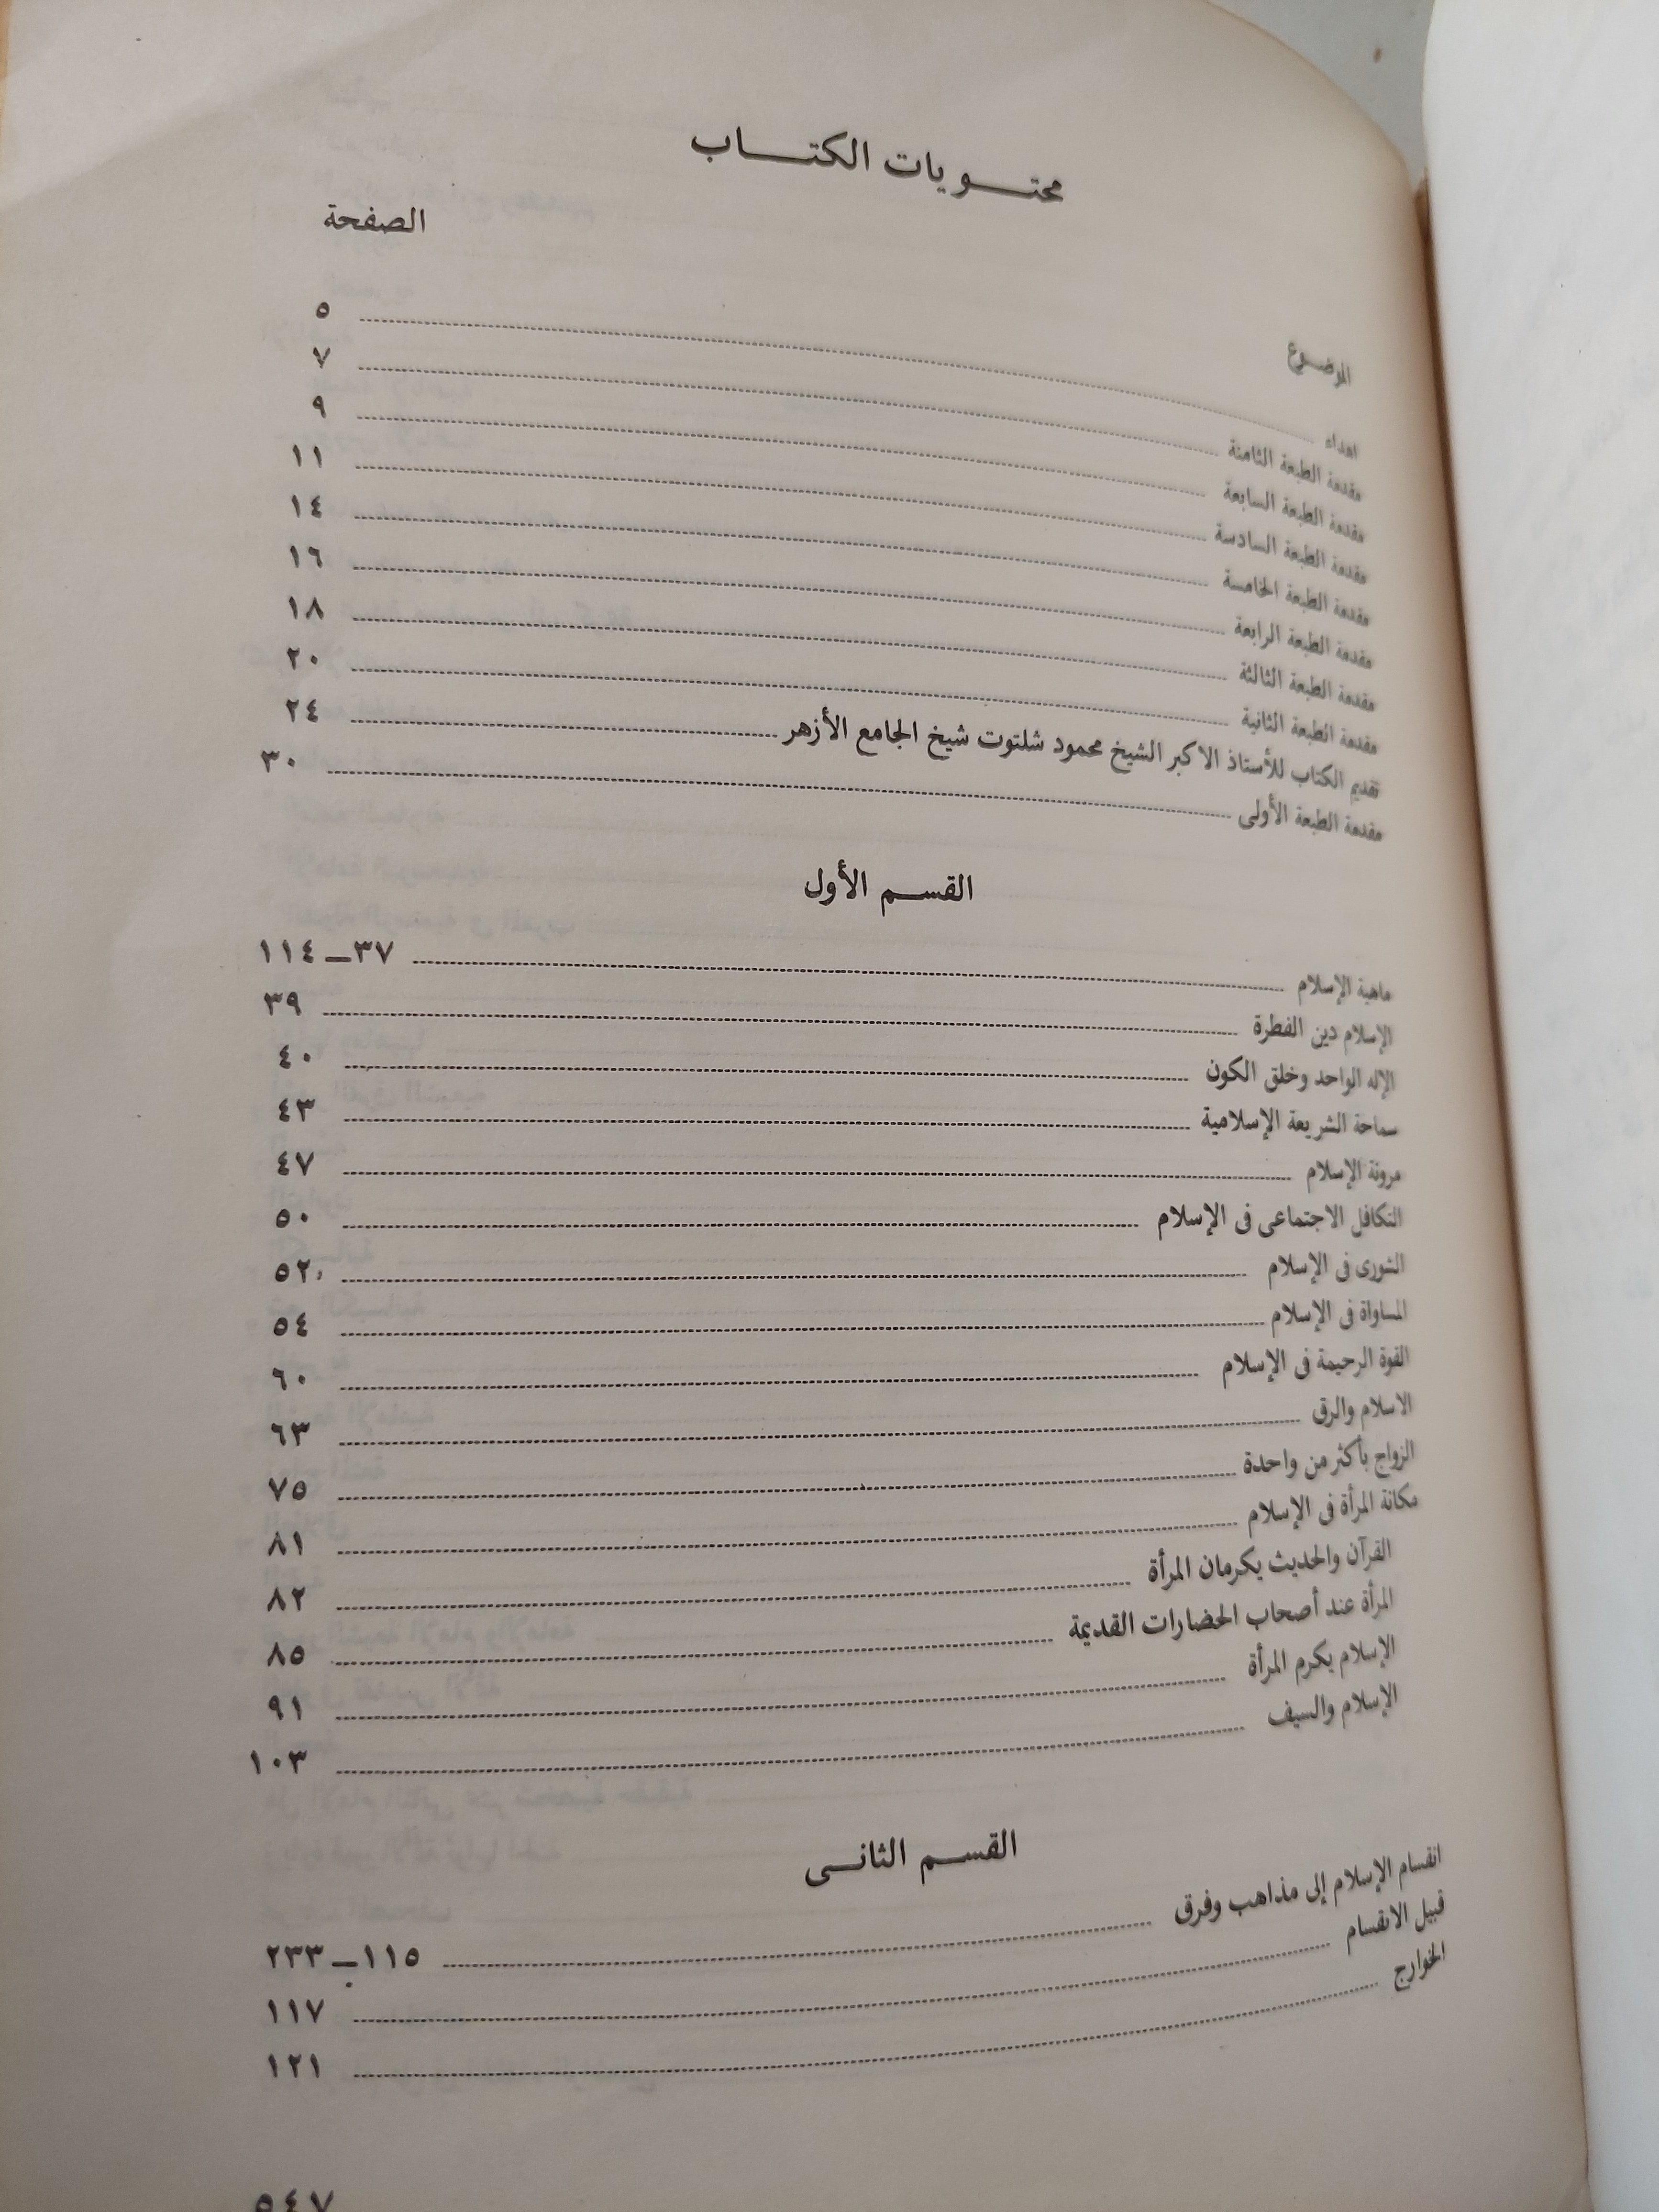 محتـــويات الكتـــاب
الصفحة
الموضـوع
اهداء ٥
مقدمة الطبعة الثامنة ٧
مقدمة الطبعة السابعة ٩
مقدمة الطبعة السادسة ١١
مقدمة الطبعة الخامسة ١٤
مقدمة الطبعة الرابعة ١٦
مقدمة الطبعة الثالثة ١٨
مقدمة الطبعة الثانية ٢٠
تقديم الكتاب للأستاذ الاكبر الشيخ محمود شلتوت شيخ الجامع الأزهر ٢٤
مقدمة الطبعة الأولى ٣٠
القســم الأول
ماهية الإسلام ٣٧ــ١١٤
الإسلام دين الفطرة ٣٩
الإله الواحد وخلق الكون ٤٠
سماحة الشريعة الإسلامية ٤٣
مرونة الإسلام ٤٧
التكافل الاجتماعى فى الإسلام ٥٠
الشورى فى الإسلام ٥٢
المساواة فى الإسلام ٥٤
القوة الرحيمة فى الإسلام ٦٠
الاسلام والرق ٦٣
الزواج بأكثر من واحدة ٧٥
مكانة المرأة فى الإسلام ٨١
القرآن والحديث يكرمان المرأة ٨٢
المرأة عند أصحاب الحضارات القديمة ٨٥
الإسلام يكرم المرأة ٩١
الإسلام والسيف ١٠٣
القســم الثانــى
انقسام الإسلام إلى مذاهب وفرق ١١٥ــ٢٣٣
قبيل الانقسام ١١٧
الخوارج ١٢١
٥٤٧